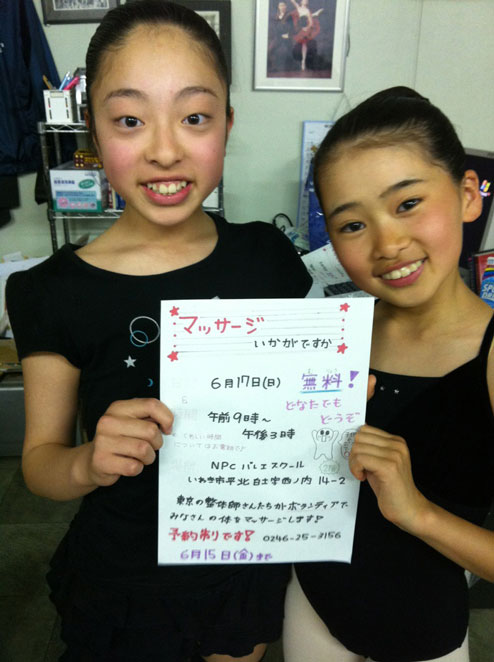 マッサージ
いかがですか
6月17日(日)
無料!
どなたでも
どうぞ
午前9時〜
午後3時
NPCバレエスクール
いわき市平北白土宮西ノ内14-2
東京の整体師さんたちがボランティアで
みなさんの体をマッサージします!
予約制です! 0246-25-3156
6月15日(金)まで